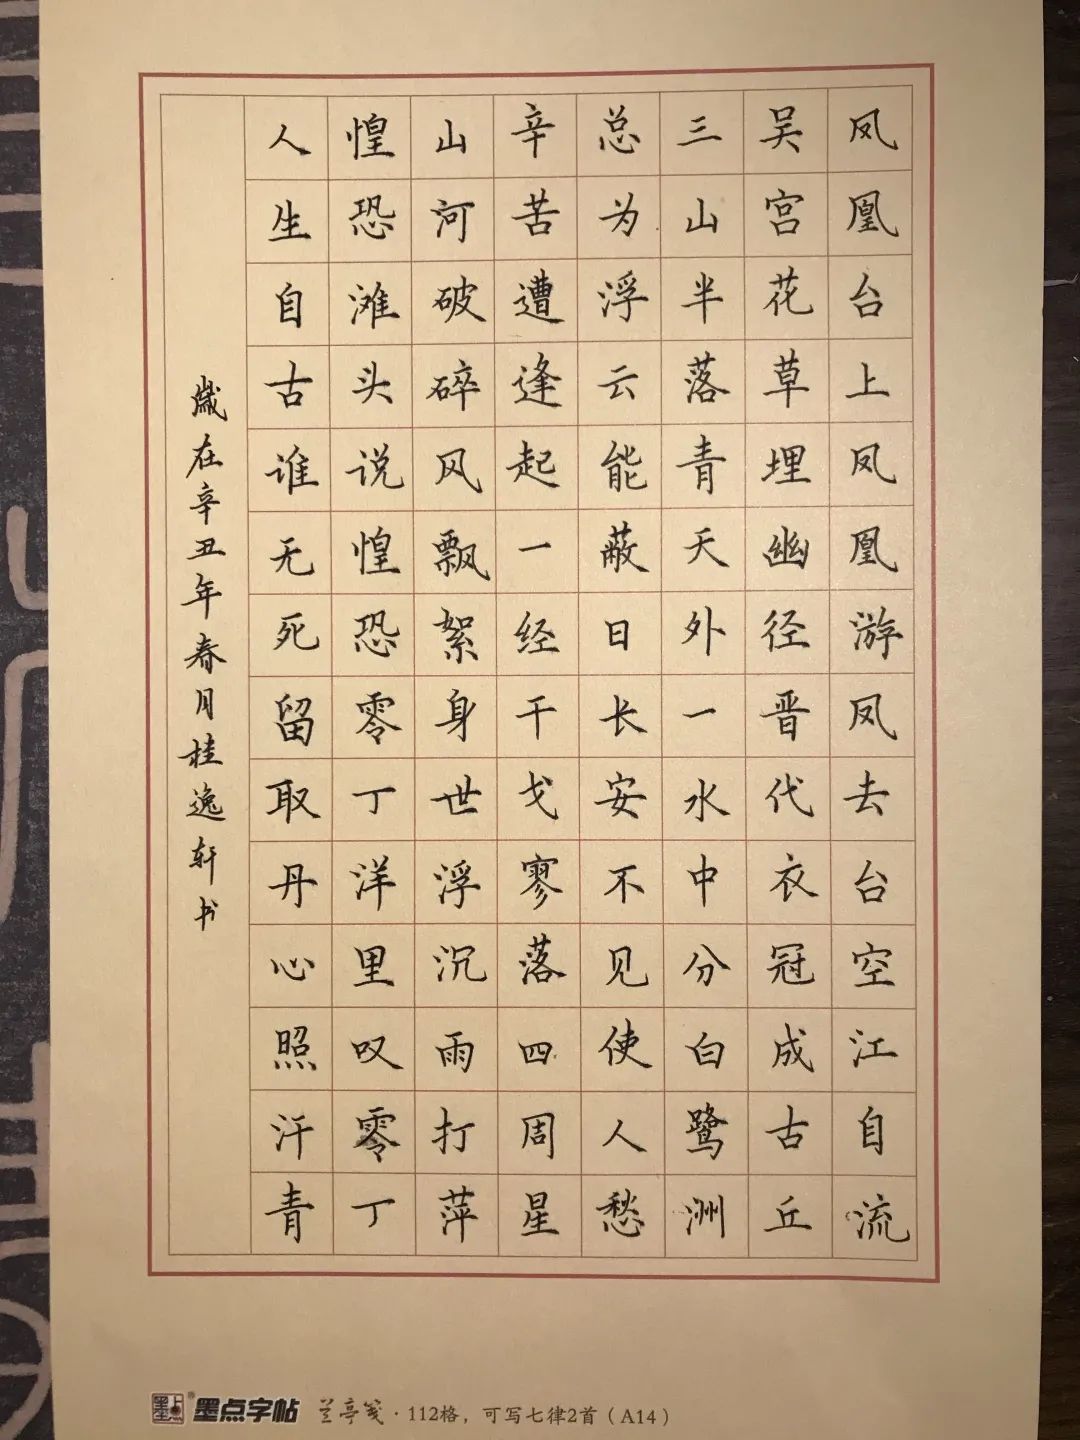 凤凰台上凤凰游凤去台空江自流
吴宫花草埋幽径晋代衣冠成古丘
三山半落青天外一水中分白鹭洲
总为浮云能蔽日长安不见使人愁
辛苦遭逢起一经干戈寥落四周星
山河破碎风飘絮身世浮沉雨打萍
惶恐滩头说惶恐零丁洋里叹零丁
人生自古谁无死留取丹心照汗青
歲在辛丑年春月桂逸轩书
墨点®墨点字帖 兰亭笺·112格，可写七律2首（A14）